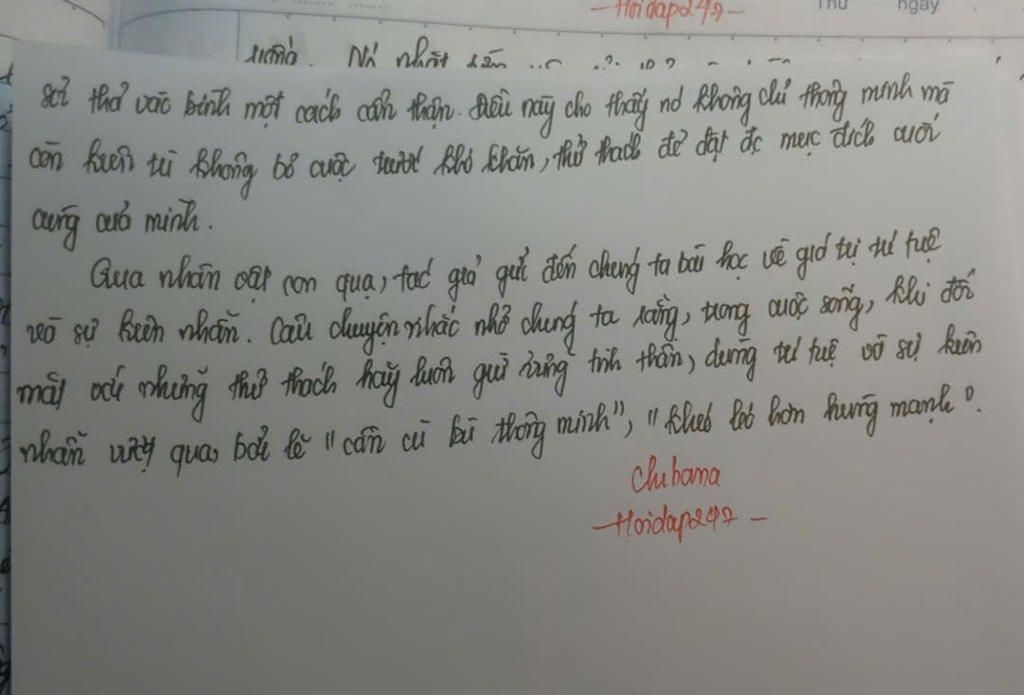 -Hoidap247-
Thứ ngày
xuống. Nó nhặt
sỏi thả vào bình một cách cẩn thận. Điều này cho thấy nó không chỉ thông minh mà
còn kiên trì không bỏ cuộc trước khó khăn, thử thách để đạt đc mục đích cuối
cùng của mình.
Qua nhân vật con quạ, tác giả gửi đến chúng ta bài học về giá trị trí tuệ
và sự kiên nhẫn. Câu chuyện nhắc nhở chúng ta rằng, trong cuộc sống, khi đối
mặt với những thử thách hãy luôn giữ vững tinh thần, dùng trí tuệ và sự kiên
nhẫn vượt qua, bởi lẽ "cần cù bù thông minh", "khéo léo hơn hùng mạnh".
Chibana
-Hoidap247-